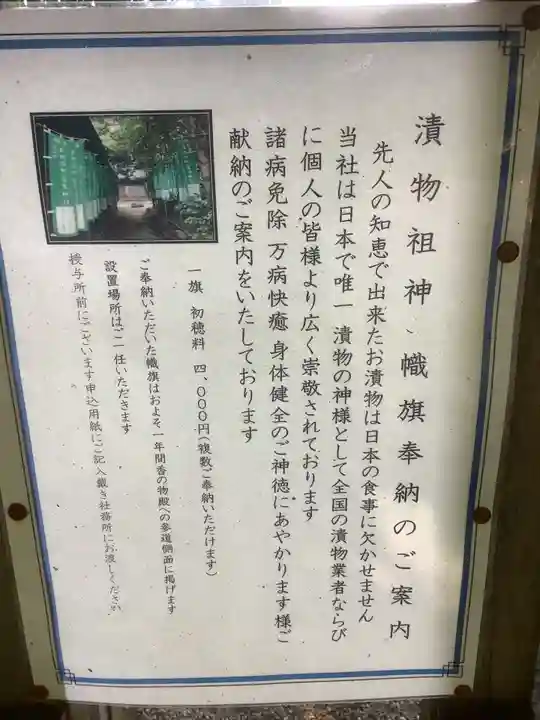 漬物祖神、幟旗奉納のご案内
先人の知恵で出来たお漬物は日本の食事に欠かせません
当社は日本で唯一 漬物の神様として全国の漬物業者ならび
に個人の皆様より広く崇敬されております
諸病免除 万病快癒 身体健全のご神徳にあやかります様ご
献納のご案内をいたしております
一旗 初穂料 四、〇〇〇円(複数ご奉納いただけます)
ご奉納いただいた幟旗はおよそ一年間香の物殿への参道側面に掲げます
設置場所はご一任いただきます
授与所前にございます申込用紙にご記入戴き社務所にお渡しください